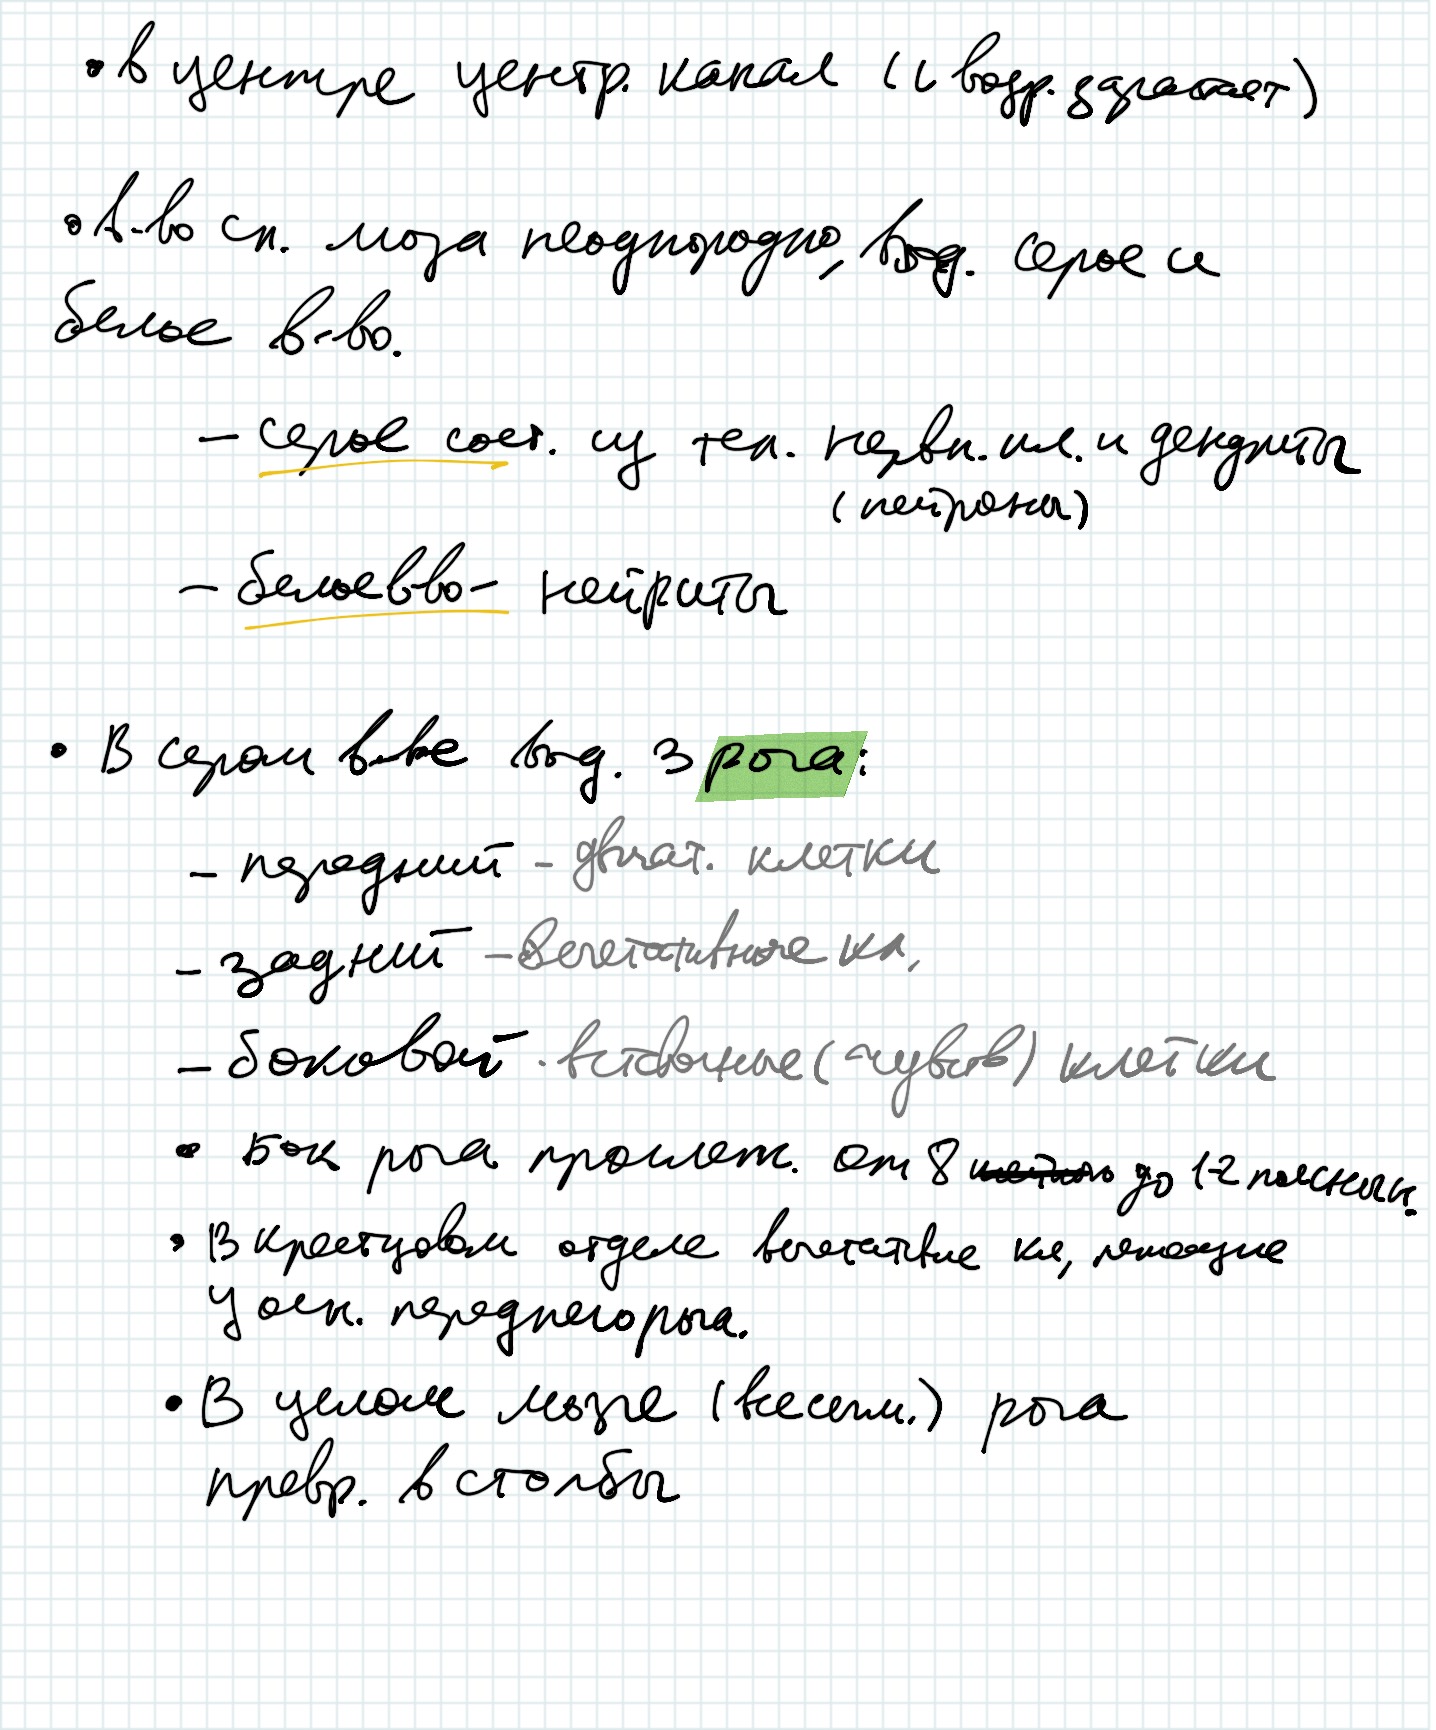 • в центре центр. канал (с возр. зарастает)
• в-во сп. мозга неоднородно, выд. серое и
белое в-во.
– серое сост. из тел. нервн. кл. и дендриты
(нейроны)
– белое в-во – нейриты
• В сером в-ве выд. 3 рога:
– передний – двигат. клетки
– задний – вегетативные кл,
– боковой - вставочные (чувств) клетки
• Бок рога прослеж. от 8 до 1-2 поясничн.
• В крестцовом отделе вегетативные кл, лежащие
у осн. переднего рога.
• В целом мозге (не сегм.) рога
превр. в столбы